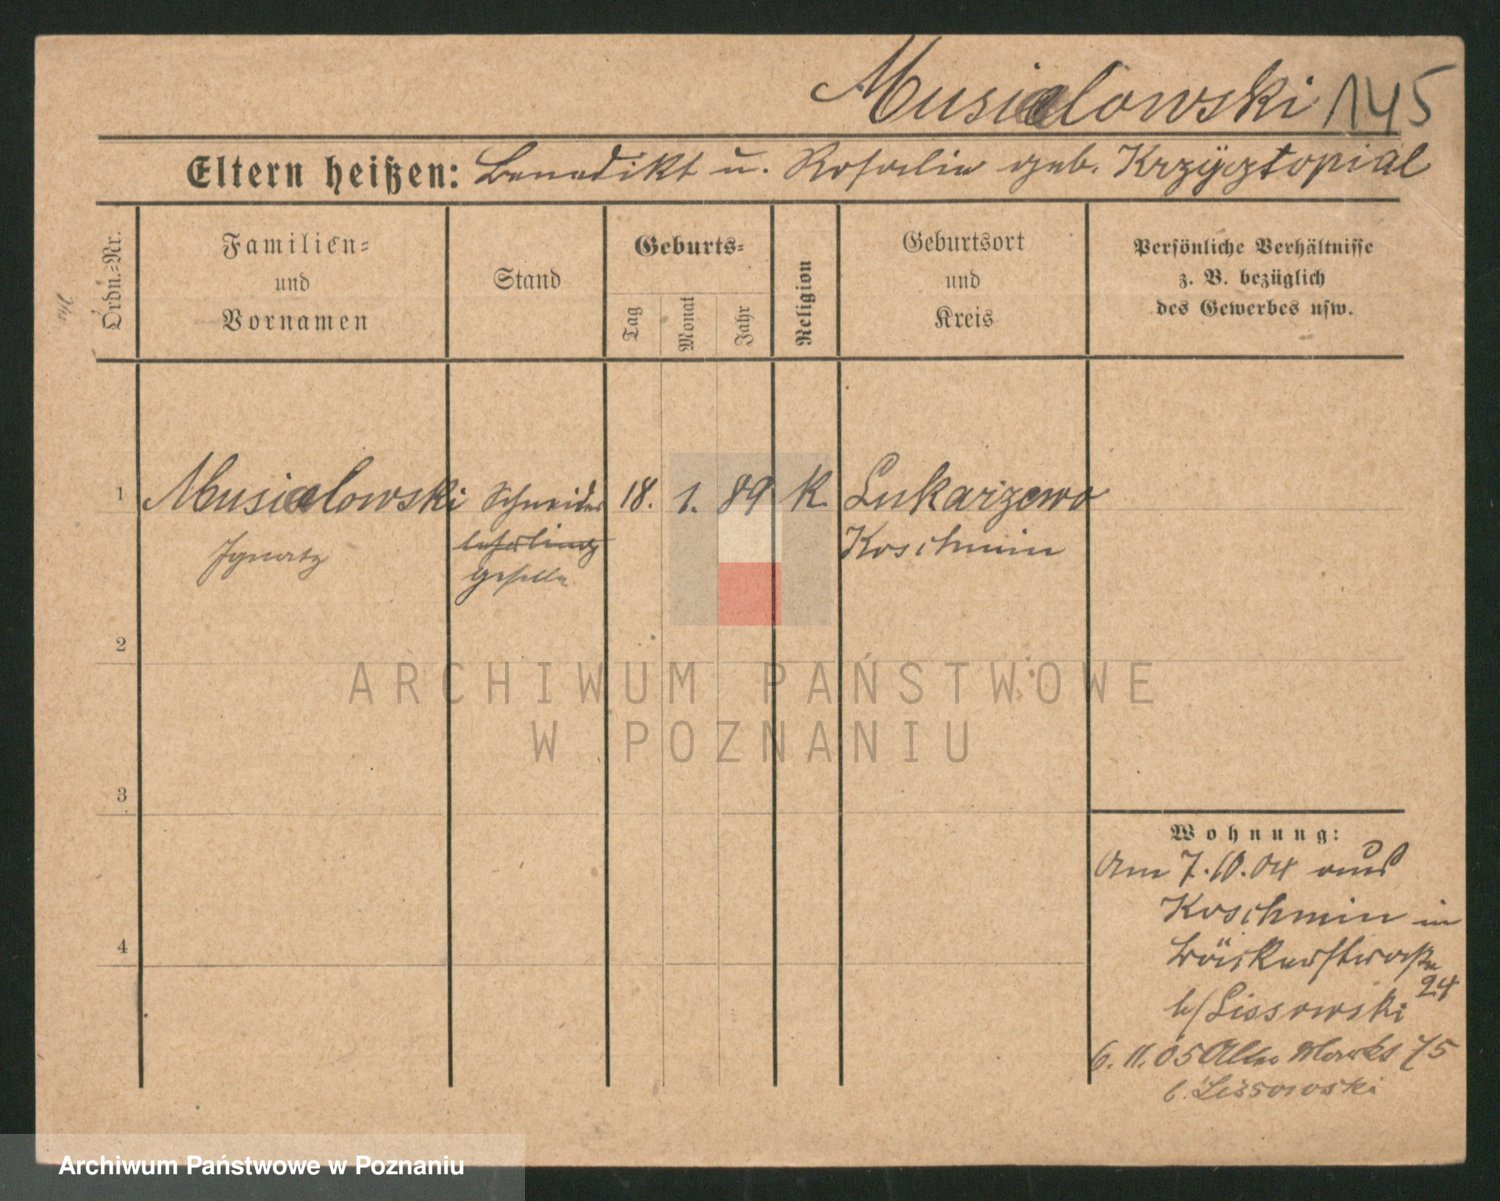 Musialowski 145
Eltern heißen: Benedikt u. Rosalie geb. Krzyztopial
Ordn.-Nr.
Familien-
und
Vornamen
Stand
Geburts-
Tag
Monat
Jahr
Religion
Geburtsort
und
Kreis
Persönliche Verhältnisse
z. B. bezüglich
des Gewerbes usw.
1 Musialowski Schneider 18. 1. 89 K. Lukarzewo
Ignatz lehrling Koschmin
geselle
2
ARCHIWUM PAŃSTWOWE
W POZNANIU
3
Wohnung:
Am 7.10.04 aus
Koschmin in
24
b/Lissowski
4
6.11.05 Alter Markt 75
b. Lissowski
Archiwum Państwowe w Poznaniu